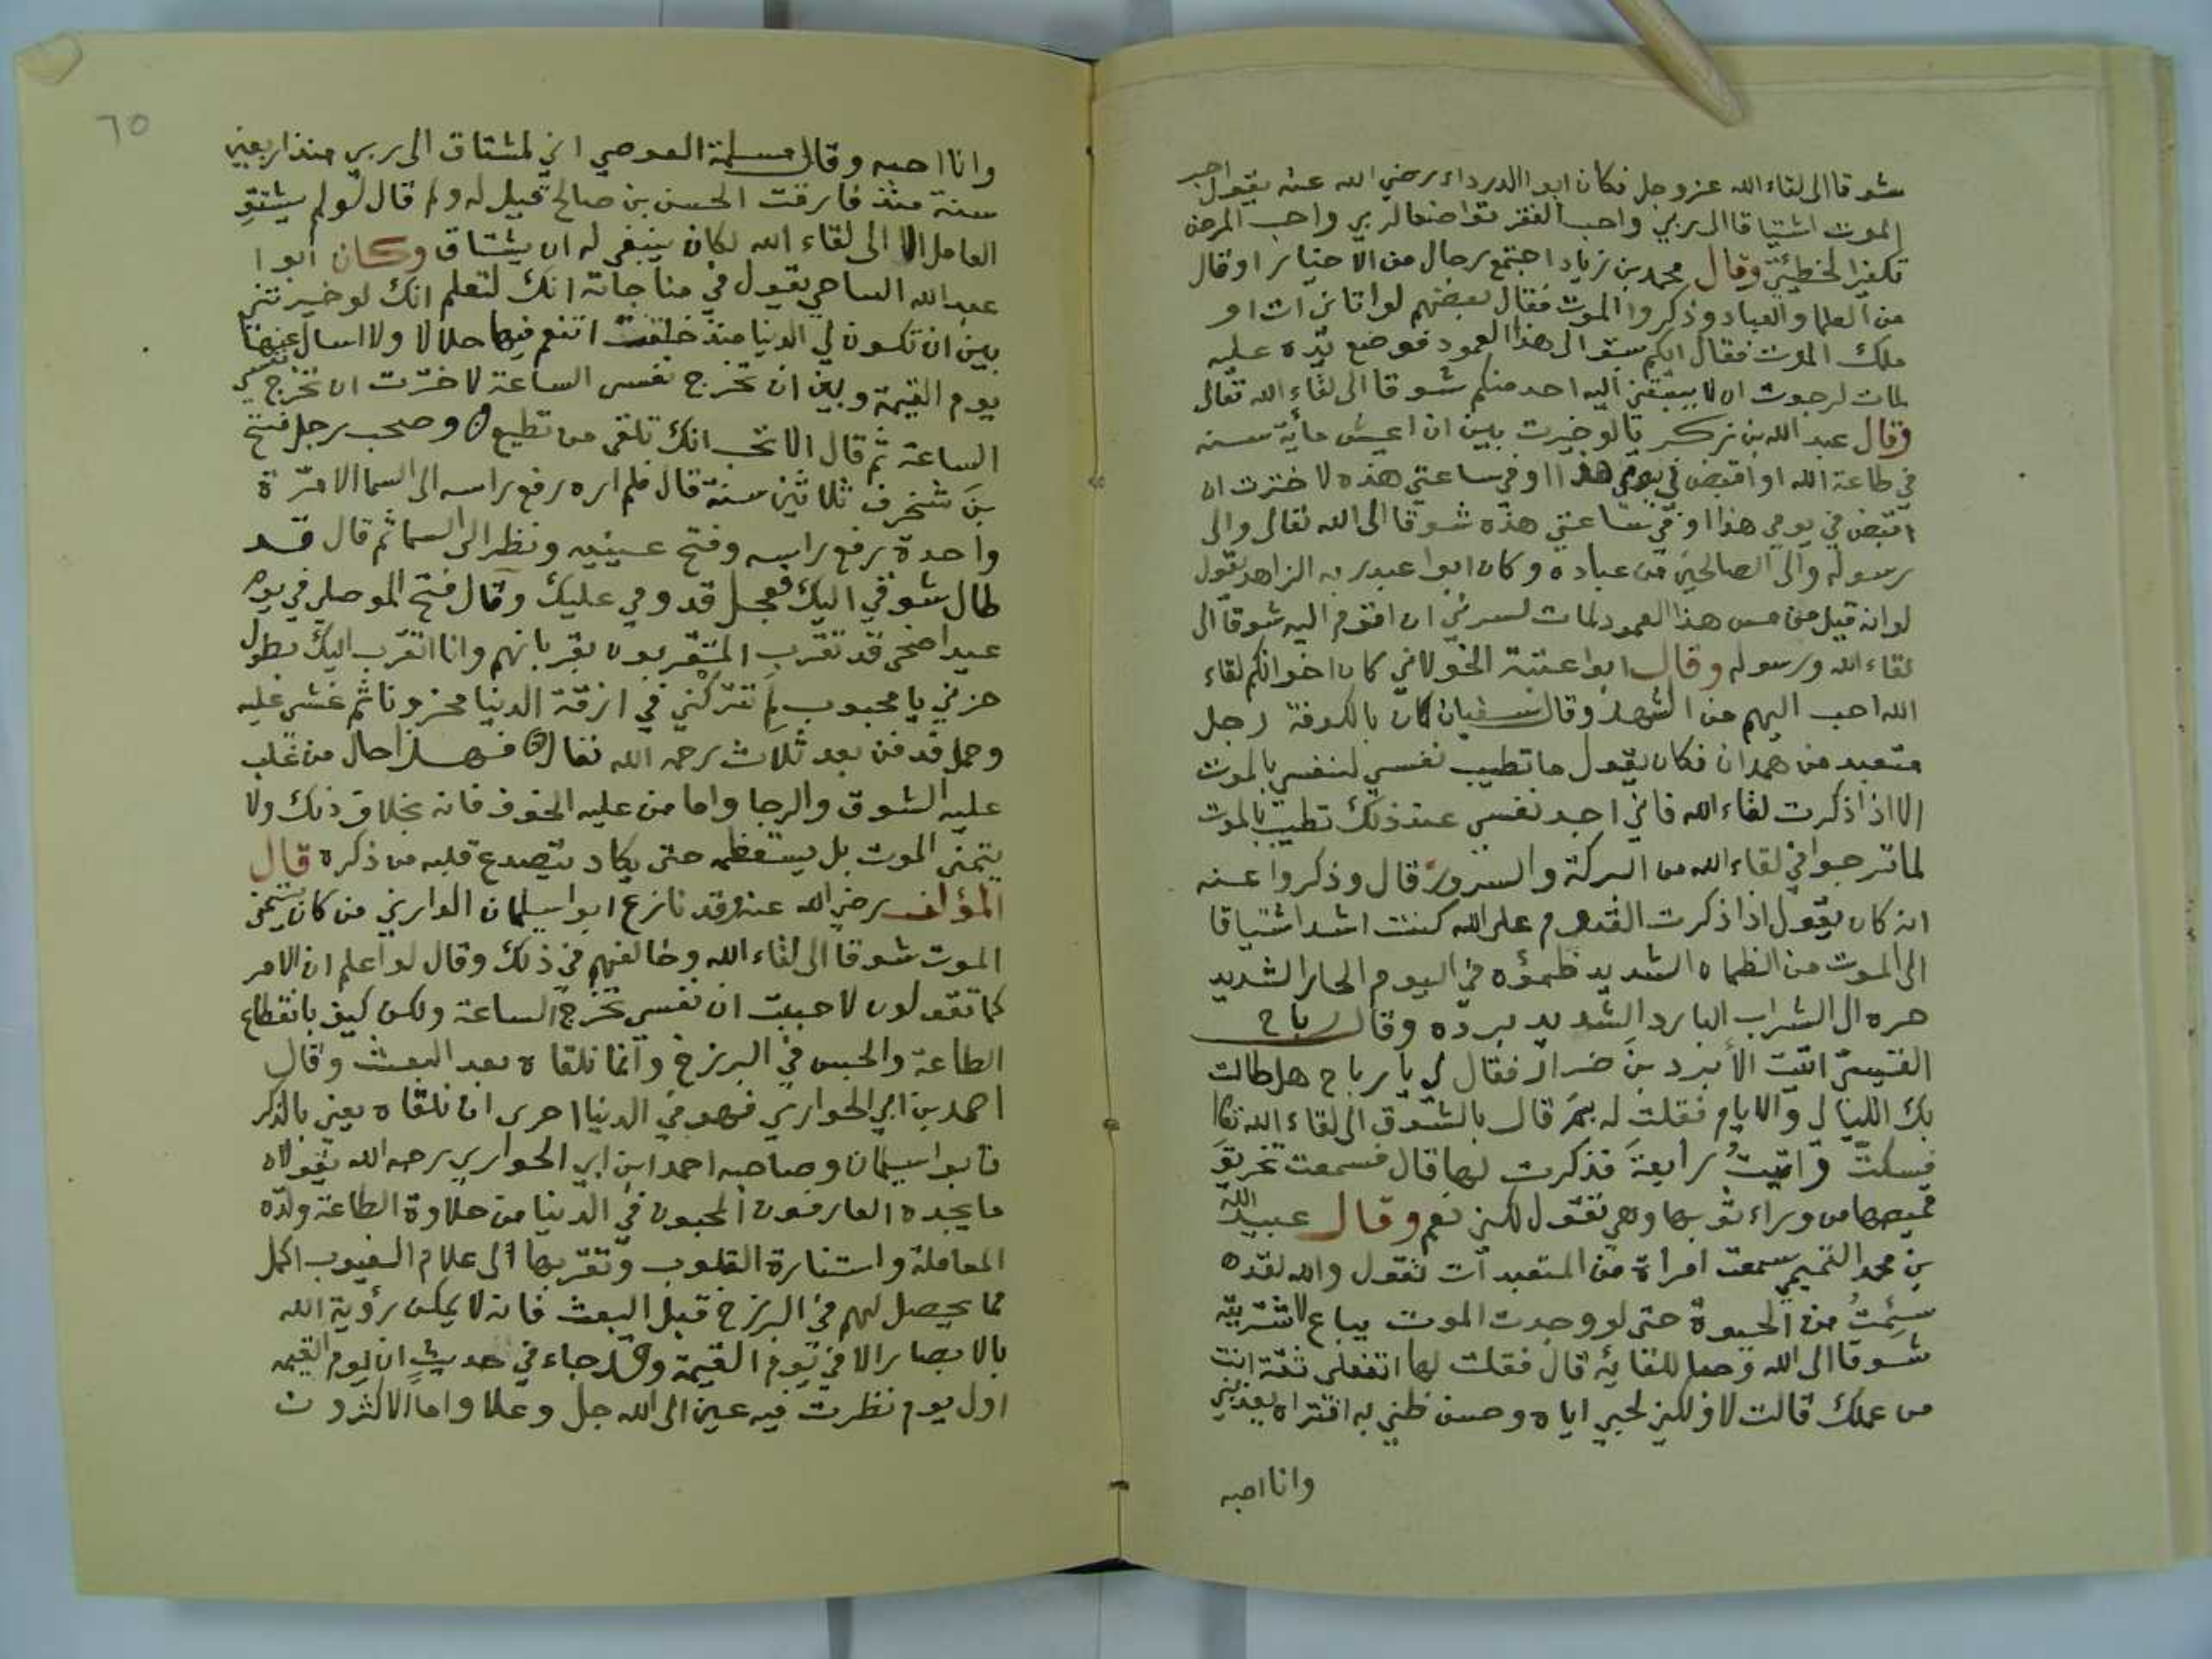 شوقا الى لقاء الله عز وجل فكان ابو الدرداء رضي الله عنه يقول احب
الموت اشتياقا الى ربي واحب الفقر تواضعا لربي واحب المرض
تكفيرا لخطيئتي وقال محمد بن زياد اجتمع رجال من الاخيار او قال
من العلما والعباد وذكروا الموت فقال بعضهم لو اتاني ات او
ملك الموت فقال ايكم سبق الى هذا العمود فوضع يده عليه
مات لرجوت ان لا يسبقني اليه احد منكم شوقا الى لقاء الله تعالى
وقال عبد الله بن زكريا لو خيرت بين ان اعيش مأية سنه
في طاعة الله او اقبض في يومي هذا او في ساعتي هذه لاخترت ان
اقبض في يومي هذا او في ساعتي هذه شوقا الى الله تعالى والى
رسوله والى الصالحين من عباده وكان ابوا عبد ربه الزاهد يقول
لو انه قيل من مس هذا العمود لمات لسرني ان اقوم اليه شوقا الى
لقاء الله ورسوله وقال ابوا عتبة الخولاني كان اخوانكم لقاء
الله احب اليهم من الشهد وقال سفيان كان بالكوفة رجل
متعبد من همدان فكان يقول ما تطيب نفسي لنفسي بالموت
الا اذا ذكرت لقاء الله فاني اجد نفسي عند ذلك تطيب بالموت
لما ترجوا في لقاء الله من البركة والسرور قال وذكروا عنه
انه كان يقول اذا ذكرت القدوم على الله كنت اشد اشتياقا
الى الموت من الظماه الشديد ظمؤه في اليوم الحار الشديد
حره الى الشراب البارد الشديد برده وقال رباح
القيسي اتيت الأبرد بن ضرار فقال لي يا رباح هل طالت
بك الليالي والايام فقلت له بم قال بالشوق الى لقاء الله تعا
فسكت واتيت رابعة فذكرت لها قال فسمعت تخريق
قميصها من وراء ثوبها وهي تقول لكني نعم وقال عبيد الله
بن محمد التميمي سمعت امراة من المتعبدات تقول والله لقد
سئمت من الحيوة حتى لو وجدت الموت يباع لاشتريته
شوقا الى الله وحبا للقائه قال فقلت لها اتفعلى ثقة انت
من عملك قالت لا ولكني لحبي اياه وحسن ظني به افتراه يعذبني
وانا احبه
٦٥
وانا احبه وقال مسلمة العوصي اني لمشتاق الى ربي منذ اربعين
سنة منذ فارقت الحسن بن صالح قيل له ولم قال لو لم يشتق
العامل الا الى لقاء الله لكان ينبغي له ان يشتاق وكان ابوا
عبد الله الساجي يقول في مناجاته انك لتعلم انك لو خيرتني
بين ان تكون لي الدنيا منذ خلقت اتنعم فيها حلالا ولا اسال عنها
يوم القيمة وبين ان تخرج نفسى الساعة لاخترت ان تخرج نفسي
الساعة ثم قال الا تحب انك تلقى من تطيع وصحب رجل فتح
بن شخرف ثلاثين سنة قال فلم اره رفع راسه الى السما الا مرة
واحدة رفع راسه وفتح عينيه ونظر الى السما ثم قال قد
طال شوقي اليك فعجل قدومي عليك وقال فتح الموصلي في يوم
عيد اضحى قد تقرب المتقربون بقربانهم وانا اتقرب اليك بطول
حزني يا محبوب لم تتركني في ازقة الدنيا محزونا ثم غشي عليه
وحمل فدفن بعد ثلاث رحمه الله تعالى فهذا حال من غلب
عليه الشوق والرجا واما من عليه الخوف فانه بخلاف ذلك ولا
يتمنى الموت بل يستعظمه حتى يكاد يتصدع قلبه من ذكره قال
المؤلف رضي الله عنه وقد نازع ابوا سليمان الداراني من كان يتمنى
الموت شوقا الى لقاء الله وخالفهم في ذلك وقال لو اعلم ان الامر
كما تقولون لاحببت ان نفسي تخرج الساعة ولكن كيف بانقطاع
الطاعة والحبس في البرزخ وانما نلقاه بعد البعث وقال
احمد بن ابي الحواري فهو في الدنيا احرى ان نلقاه يعني بالذكر
فابوا سليمان وصاحبه احمد ابن ابي الحواري رحمه الله يقولان
ما يجده العارفون المحبون في الدنيا من حلاوة الطاعة ولذه
المعاملة واستنارة القلوب وتقربها الى علام الغيوب اكمل
مما يحصل لهم في البرزخ قبل البعث فانه لا يمكن رؤية الله
بالابصار الا في يوم القيمة وقد جاء في حديث ان يوم القيمه
اول يوم نظرت فيه عين الى الله جل وعلا واما الاكثرون